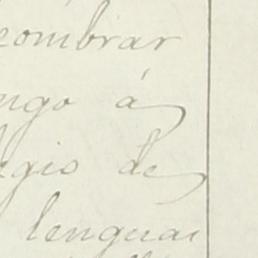 combrar
ngo á
egio de
lenguai